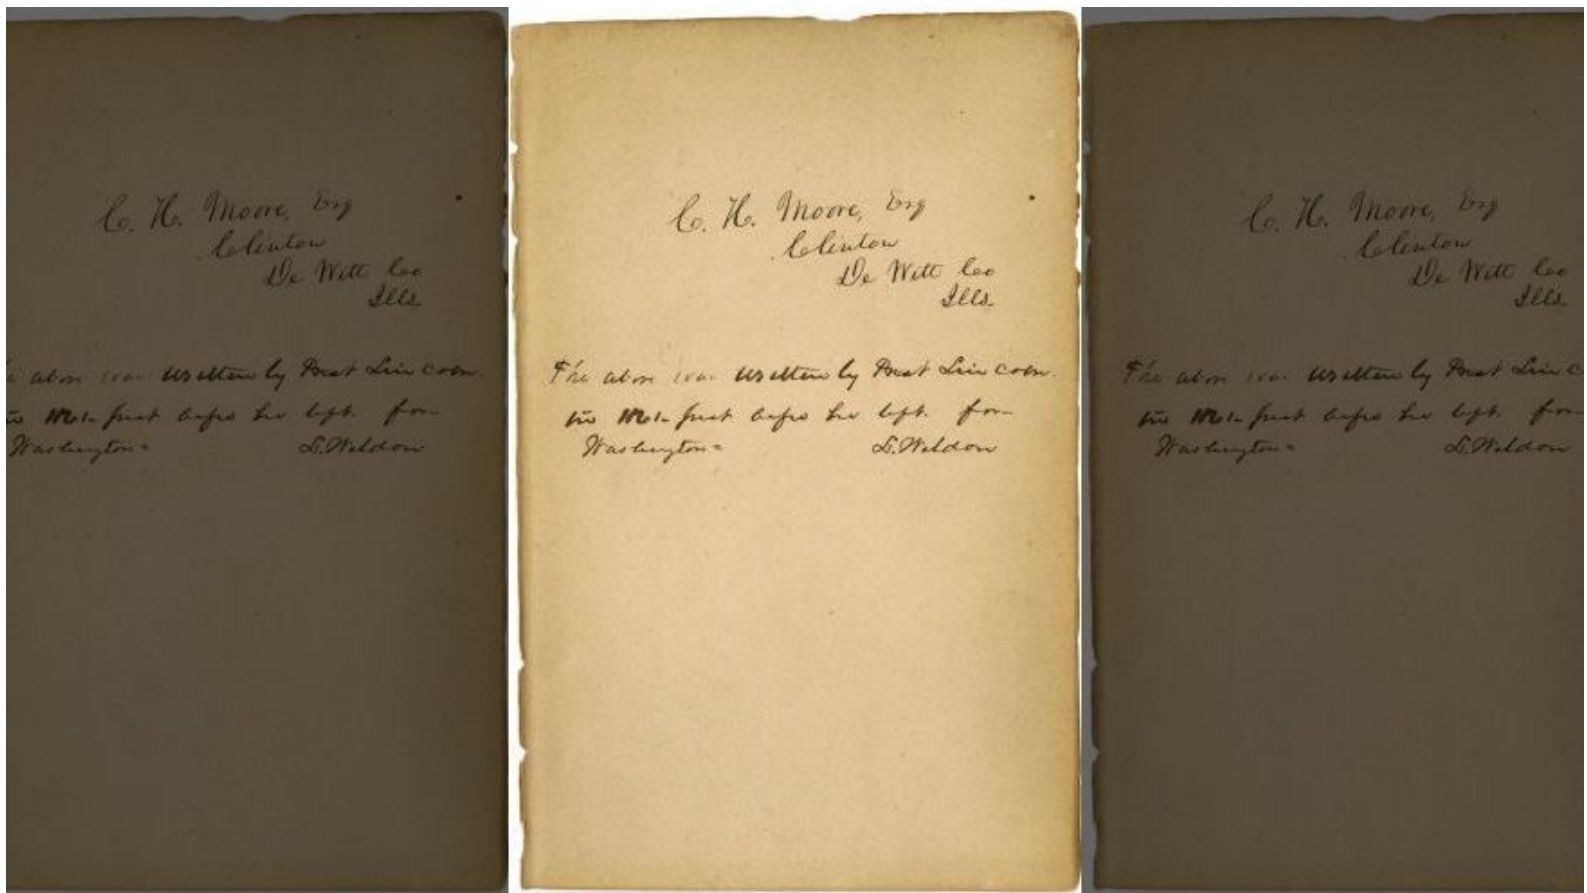 C. H. Moore, Esq
Clinton
De Witt Co
Ills.
The above was written by Prest Lincoln
in just before he left for
Washington=
L. Weldon